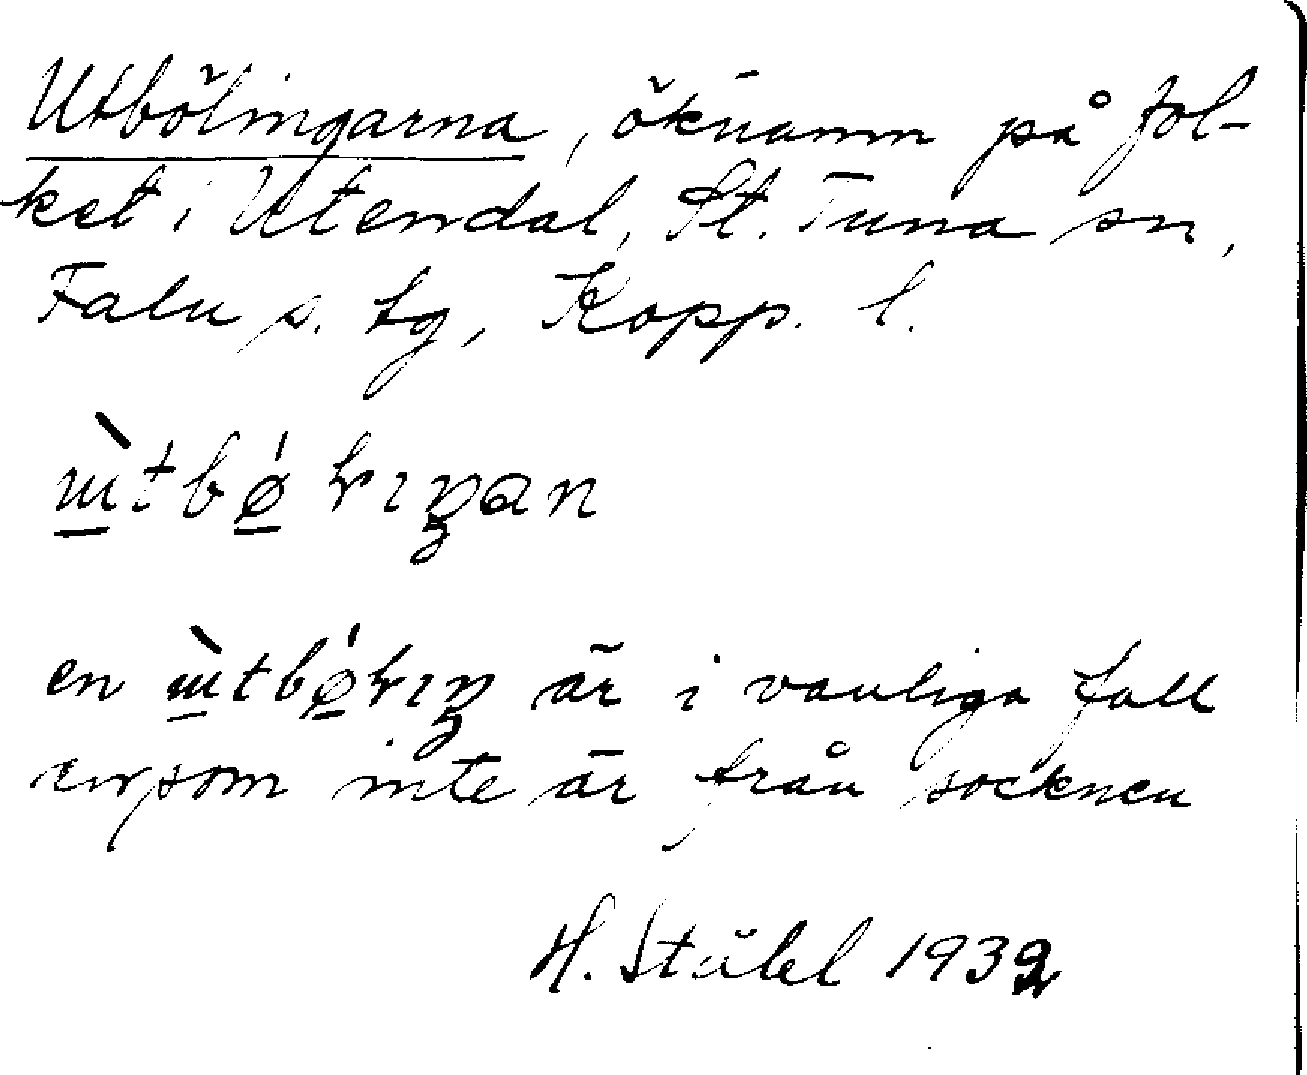 Utbölingarna, öknamn på fol-
ket i Utendal, St. Tuna sn,
Falu s. tg, Kopp. l.
en är i vanliga fall
en som inte är från socknen
H. Stübel 1932